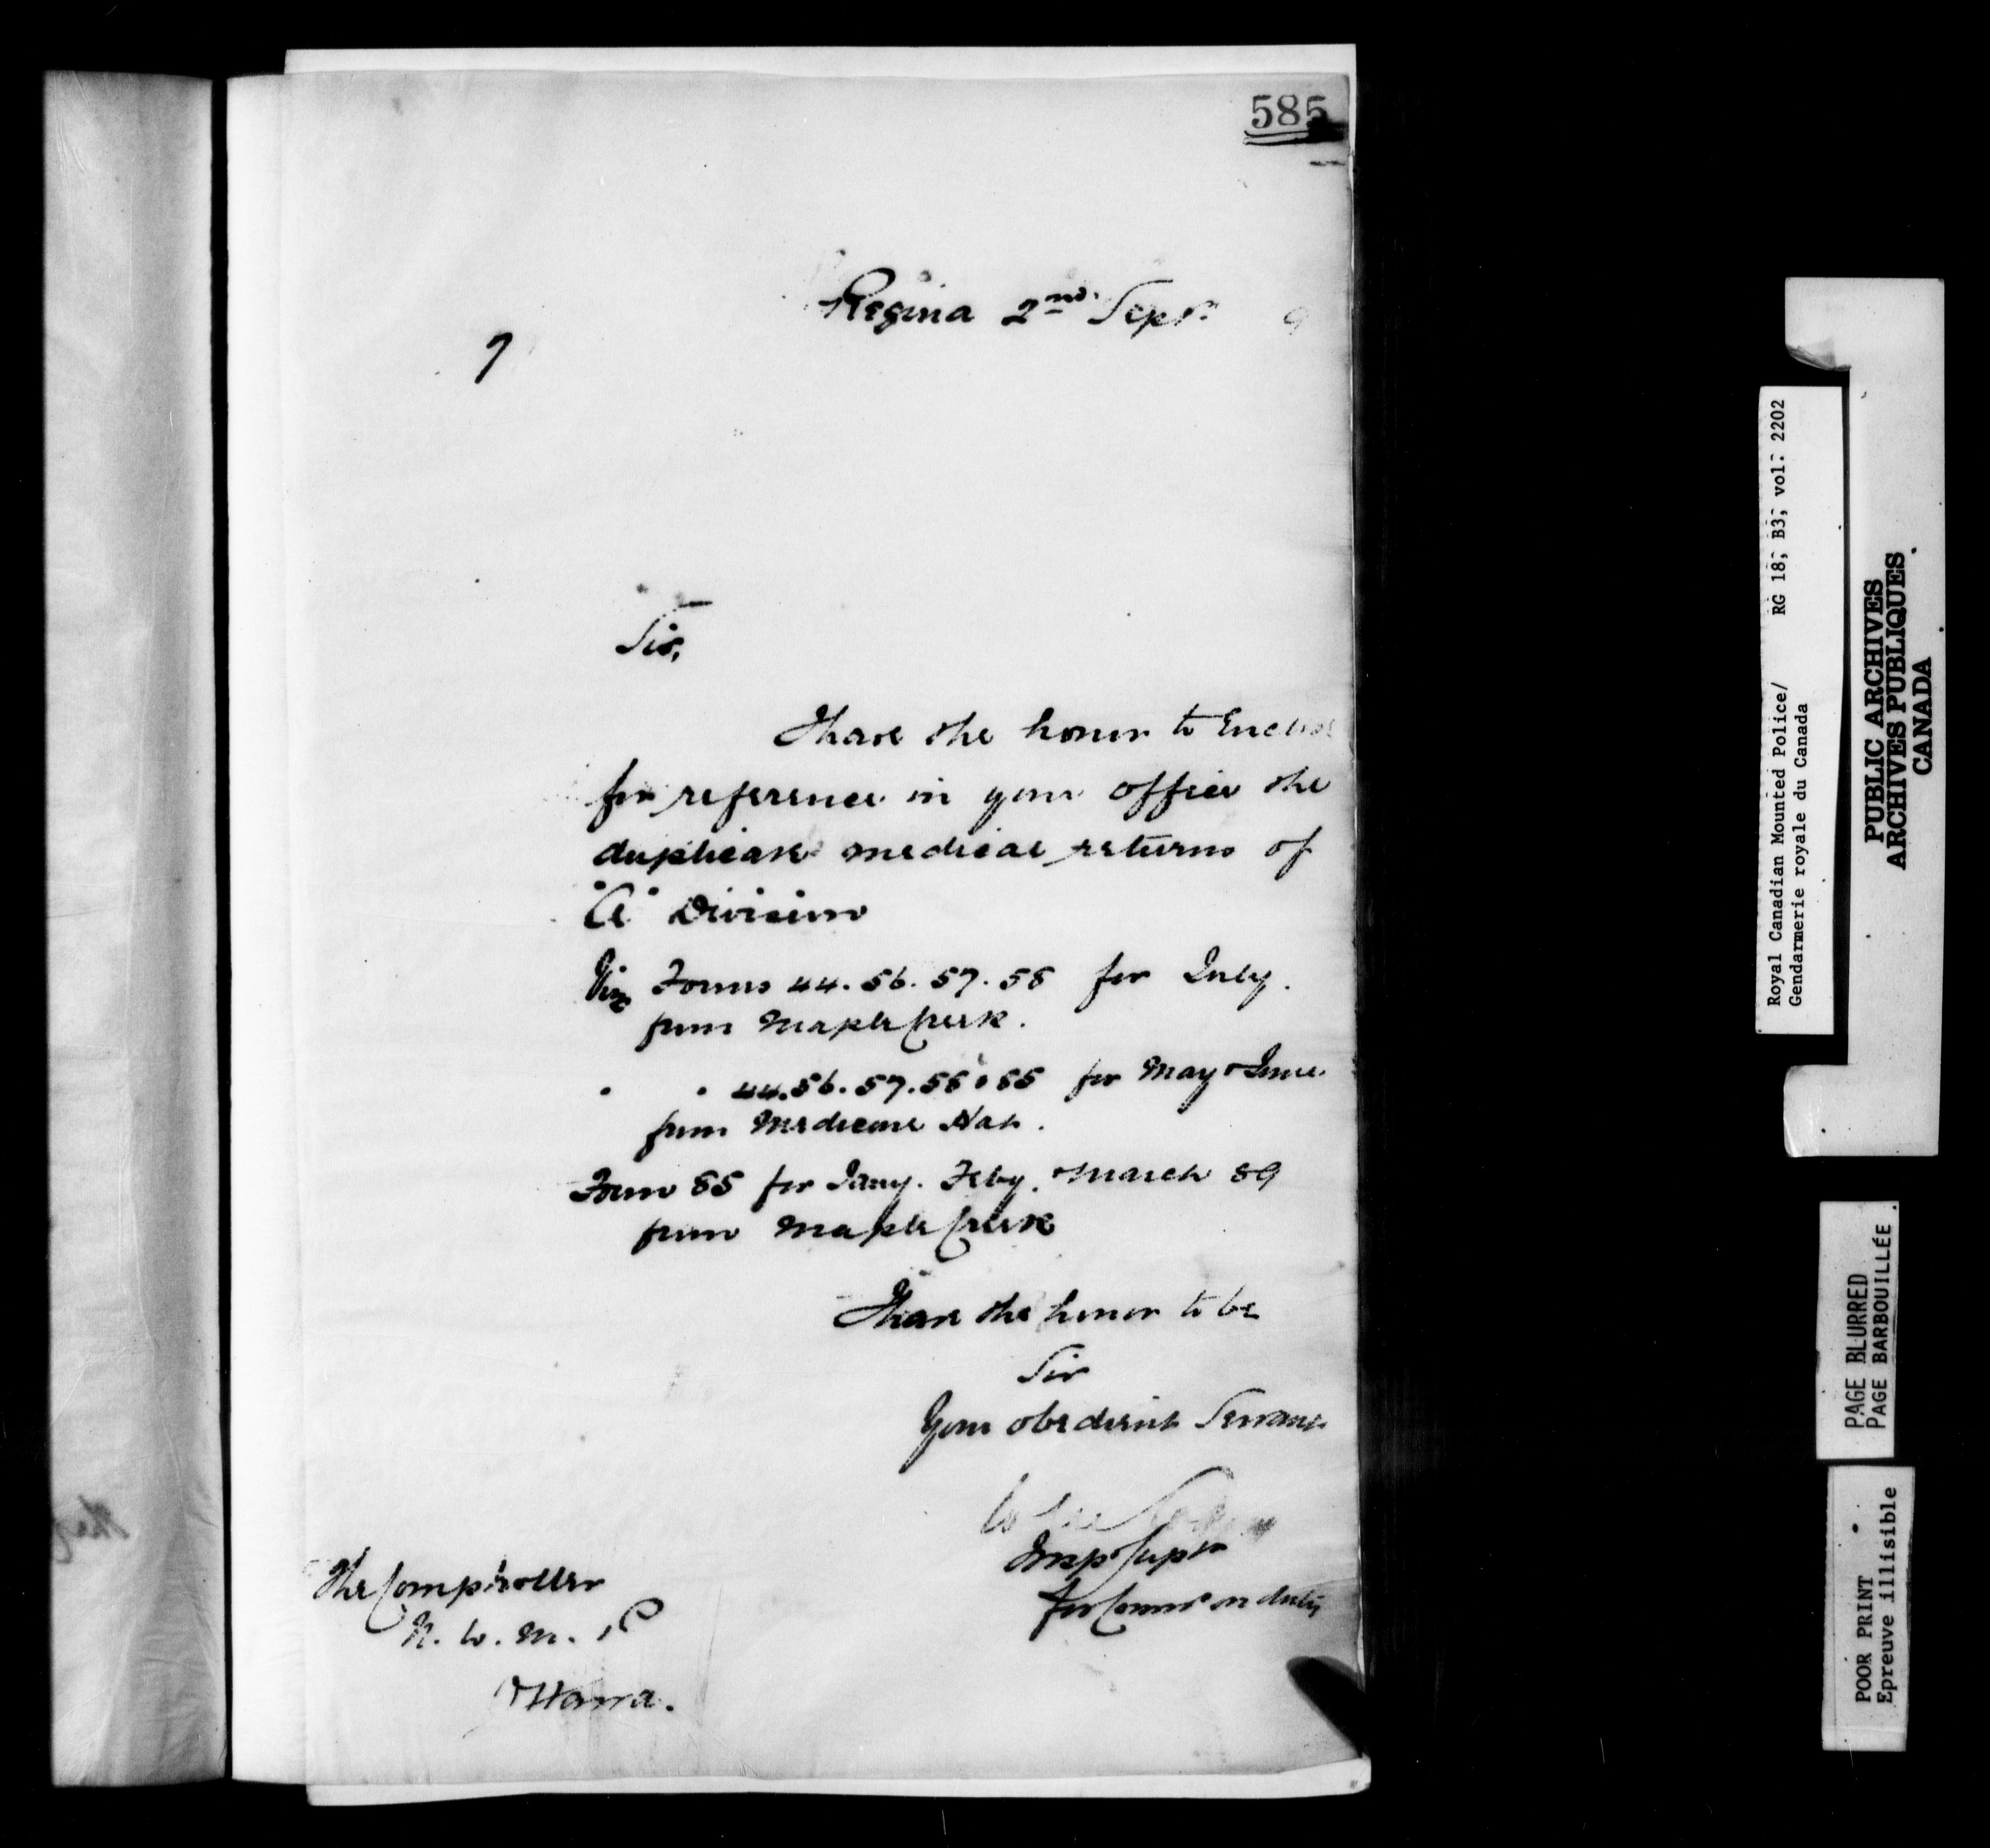 585
Regina 2nd Sept. 9
7
Sir,
I have the honor to Enclose
for reference in your office the
duplicate medical returns of
"A" Division
Viz Forms 44. 56. 57. 58 for July.
from Maple Creek.
" " 44. 56. 57. 58 & 85 for May & June
from Medicine Hat.
Form 85 for Jany. Feby. & March 89
from Maple Creek
I have the honor to be
Sir
Your obedient Servant
Insp Supt
for Commr on duty
The Comptroller
N. W. M. P
Ottawa.
Royal Canadian Mounted Police/ RG 18, B3, vol. 2202
Gendarmerie royale du Canada
PUBLIC ARCHIVES
ARCHIVES PUBLIQUES
CANADA
PAGE BLURRED
PAGE BARBOUILLÉE
POOR PRINT
Epreuve illisible